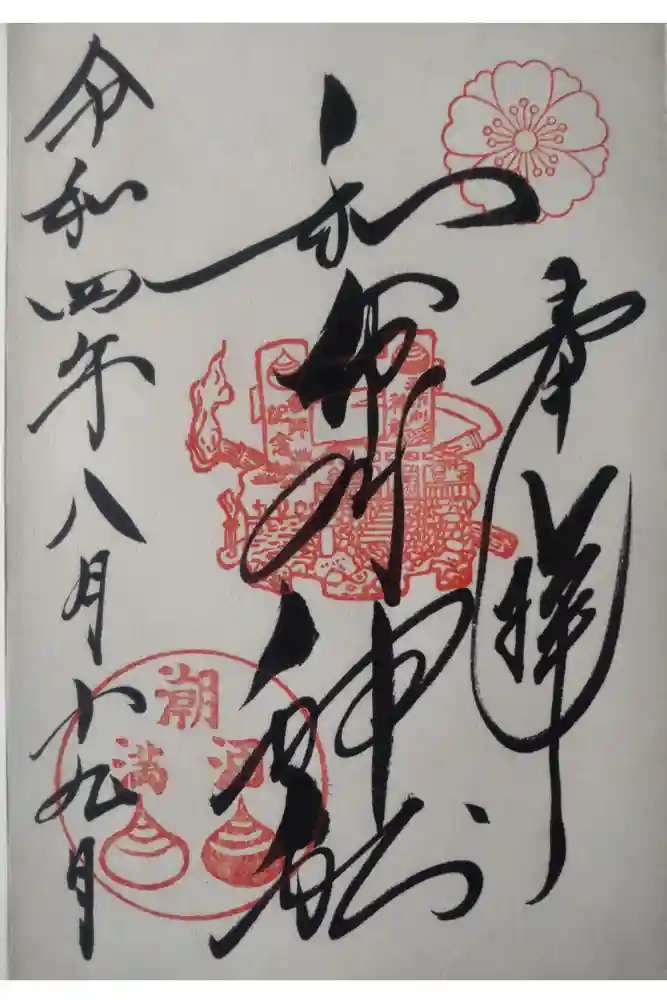 奉拝
和布刈神社
令和四年八月十九日
潮
涸
満